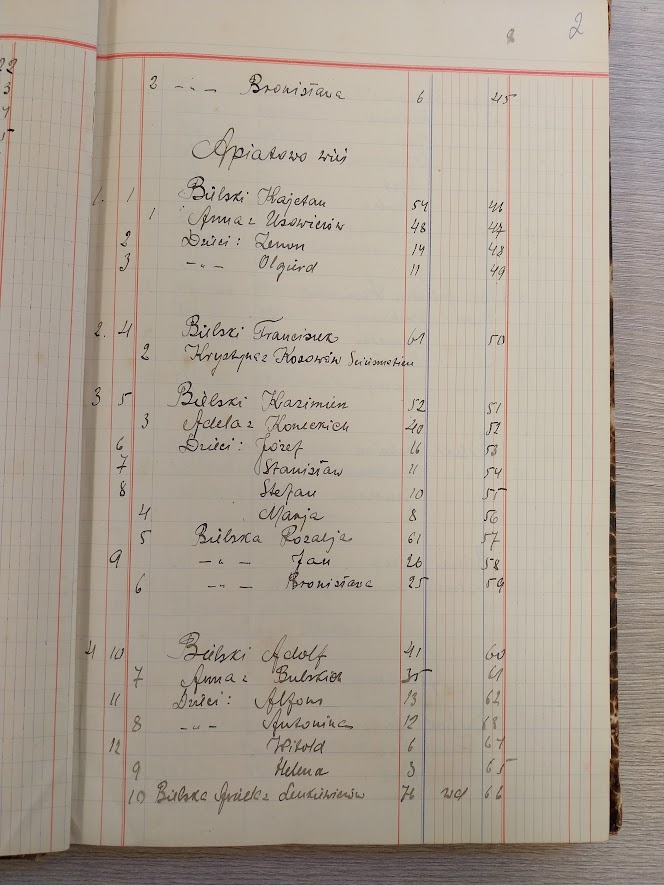 2
22
3
4
5
2 -"- Bronisława 6 45
Apiatowo wieś
1. 1 Bielski Kajetan 54 46
1 Anna z Usowiczów 48 47
2 Dzieci: Zenon 14 48
3 -"- Olgierd 11 49
2. 4 Bielski Franciszek 61 50
2 Krystyna z Kosowów
3 5 Bielski Kazimierz 52 51
3 Adela z Koneckich 40 52
6 Dzieci: Józef 16 53
7 Stanisław 11 54
8 Stefan 10 55
4 Marja 8 56
5 Bielska Rozalja 61 57
9 -"- Jan 26 58
6 -"- Bronisława 25 59
4 10 Bielski Adolf 41 60
7 Anna z Bielskich 35 61
11 Dzieci: Alfons 13 62
8 -"- Antonina 12 63
12 Witold 6 64
9 Helena 3 65
10 Bielska z Lenkiewiczów 76 wd 66